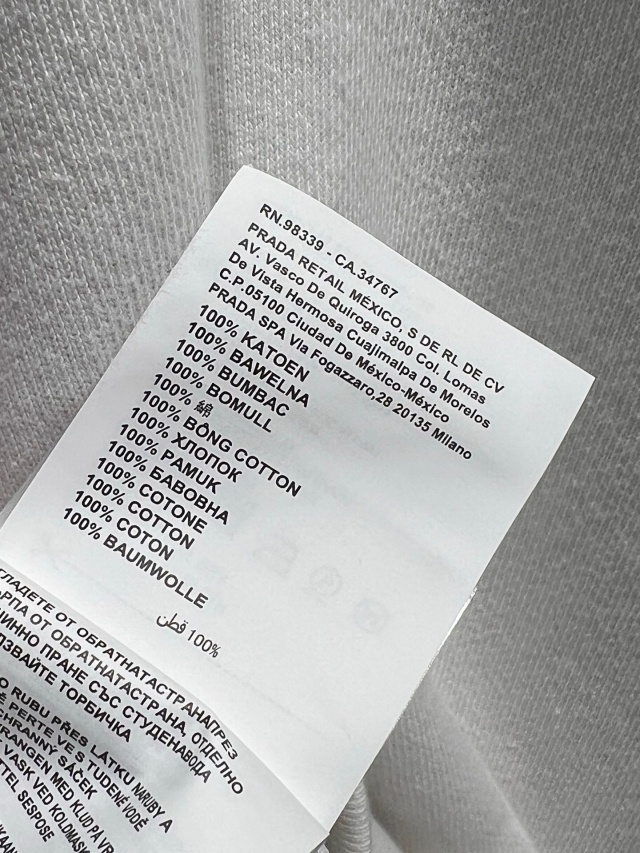 RN.98339 - CA.34767
PRADA RETAIL MÉXICO, S DE RL DE CV
AV. Vasco De Quiroga 3800 Col. Lomas
De Vista Hermosa Cuajimalpa De Morelos
C.P.05100 Ciudad De México-México
PRADA SPA Via Fogazzaro,28 20135 Milano
100% KATOEN
100% BAWELNA
100% BUMBAC
100% BOMULL
100% 綿
100% BÔNG COTTON
100% ХЛОПОК
100% PAMUK
100% БАВОВНА
100% COTONE
100% COTTON
100% COTON
100% BAUMWOLLE
100% قطن
ГЛАДЕТЕ ОТ ОБРАТНАТАСТРАНАПРЕЗ
ОТ ОБРАТНАТАСТРАНА, ОТДЕЛНО
ПРАНЕ СЪС СТУДЕНАВОДА
ТОРБИЧКА
RUBU PŘES LÁTKU NARUBY A
PERTE VE S TUDENÉ VODĚ
SÁČEK
MED KLUD PÅ
VASK VED
SESPOSE